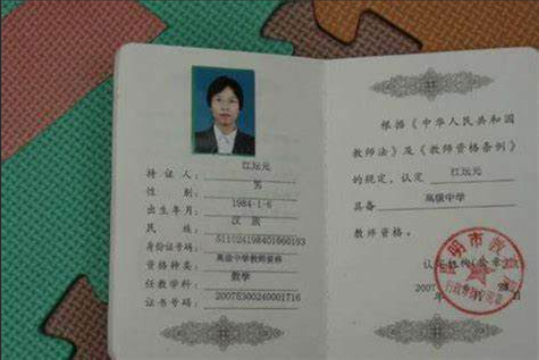 江坛元
持 证 人：
性 别： 男
1984-1-6
出生年月：
民 族： 汉 族
身份证号码： 511024198401060193
资格种类： 高级中学教师资格
任教学科： 数学
证书号码： 20075300240001716
根据《中华人民共和国
教师法》及《教师资格条例》
的规定，认定 江坛元
具备 高级中学
教师资格。
明市教
2007